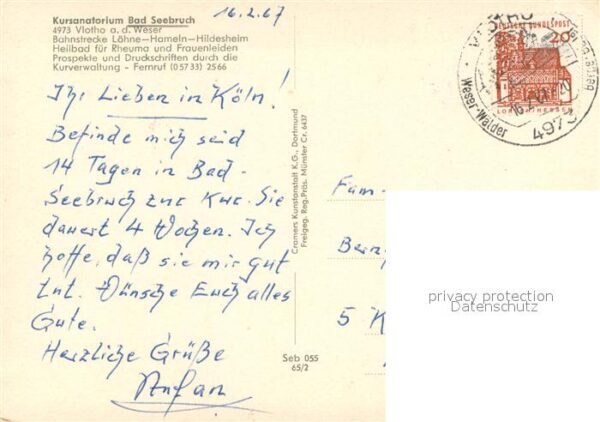 16.2.67
Kursanatorium Bad Seebruch
4973 Vlotho a. d. Weser
Bahnstrecke Löhne—Hameln—Hildesheim
Heilbad für Rheuma und Frauenleiden
Prospekte und Druckschriften durch die
Kurverwaltung - Fernruf (0 57 33) 25 66
Ihr Lieben in Köln!
Befinde mich seid
14 Tagen in Bad-
Seebruch zur Kur. Sie
dauert 4 Wochen. Ich
hoffe, daß sie mir gut
tut. Wünsche Euch alles
Gute.
Herzliche Grüße
Cramers Kunstanstalt K.G., Dortmund
Freigeg. Reg.Präs. Münster Cr. 6437
Seb 055
65/2
DEUTSCHE BUNDESPOST
20
VLOTHO
Weser-Wälder
497
Fam-
5 K
privacy protection
Datenschutz